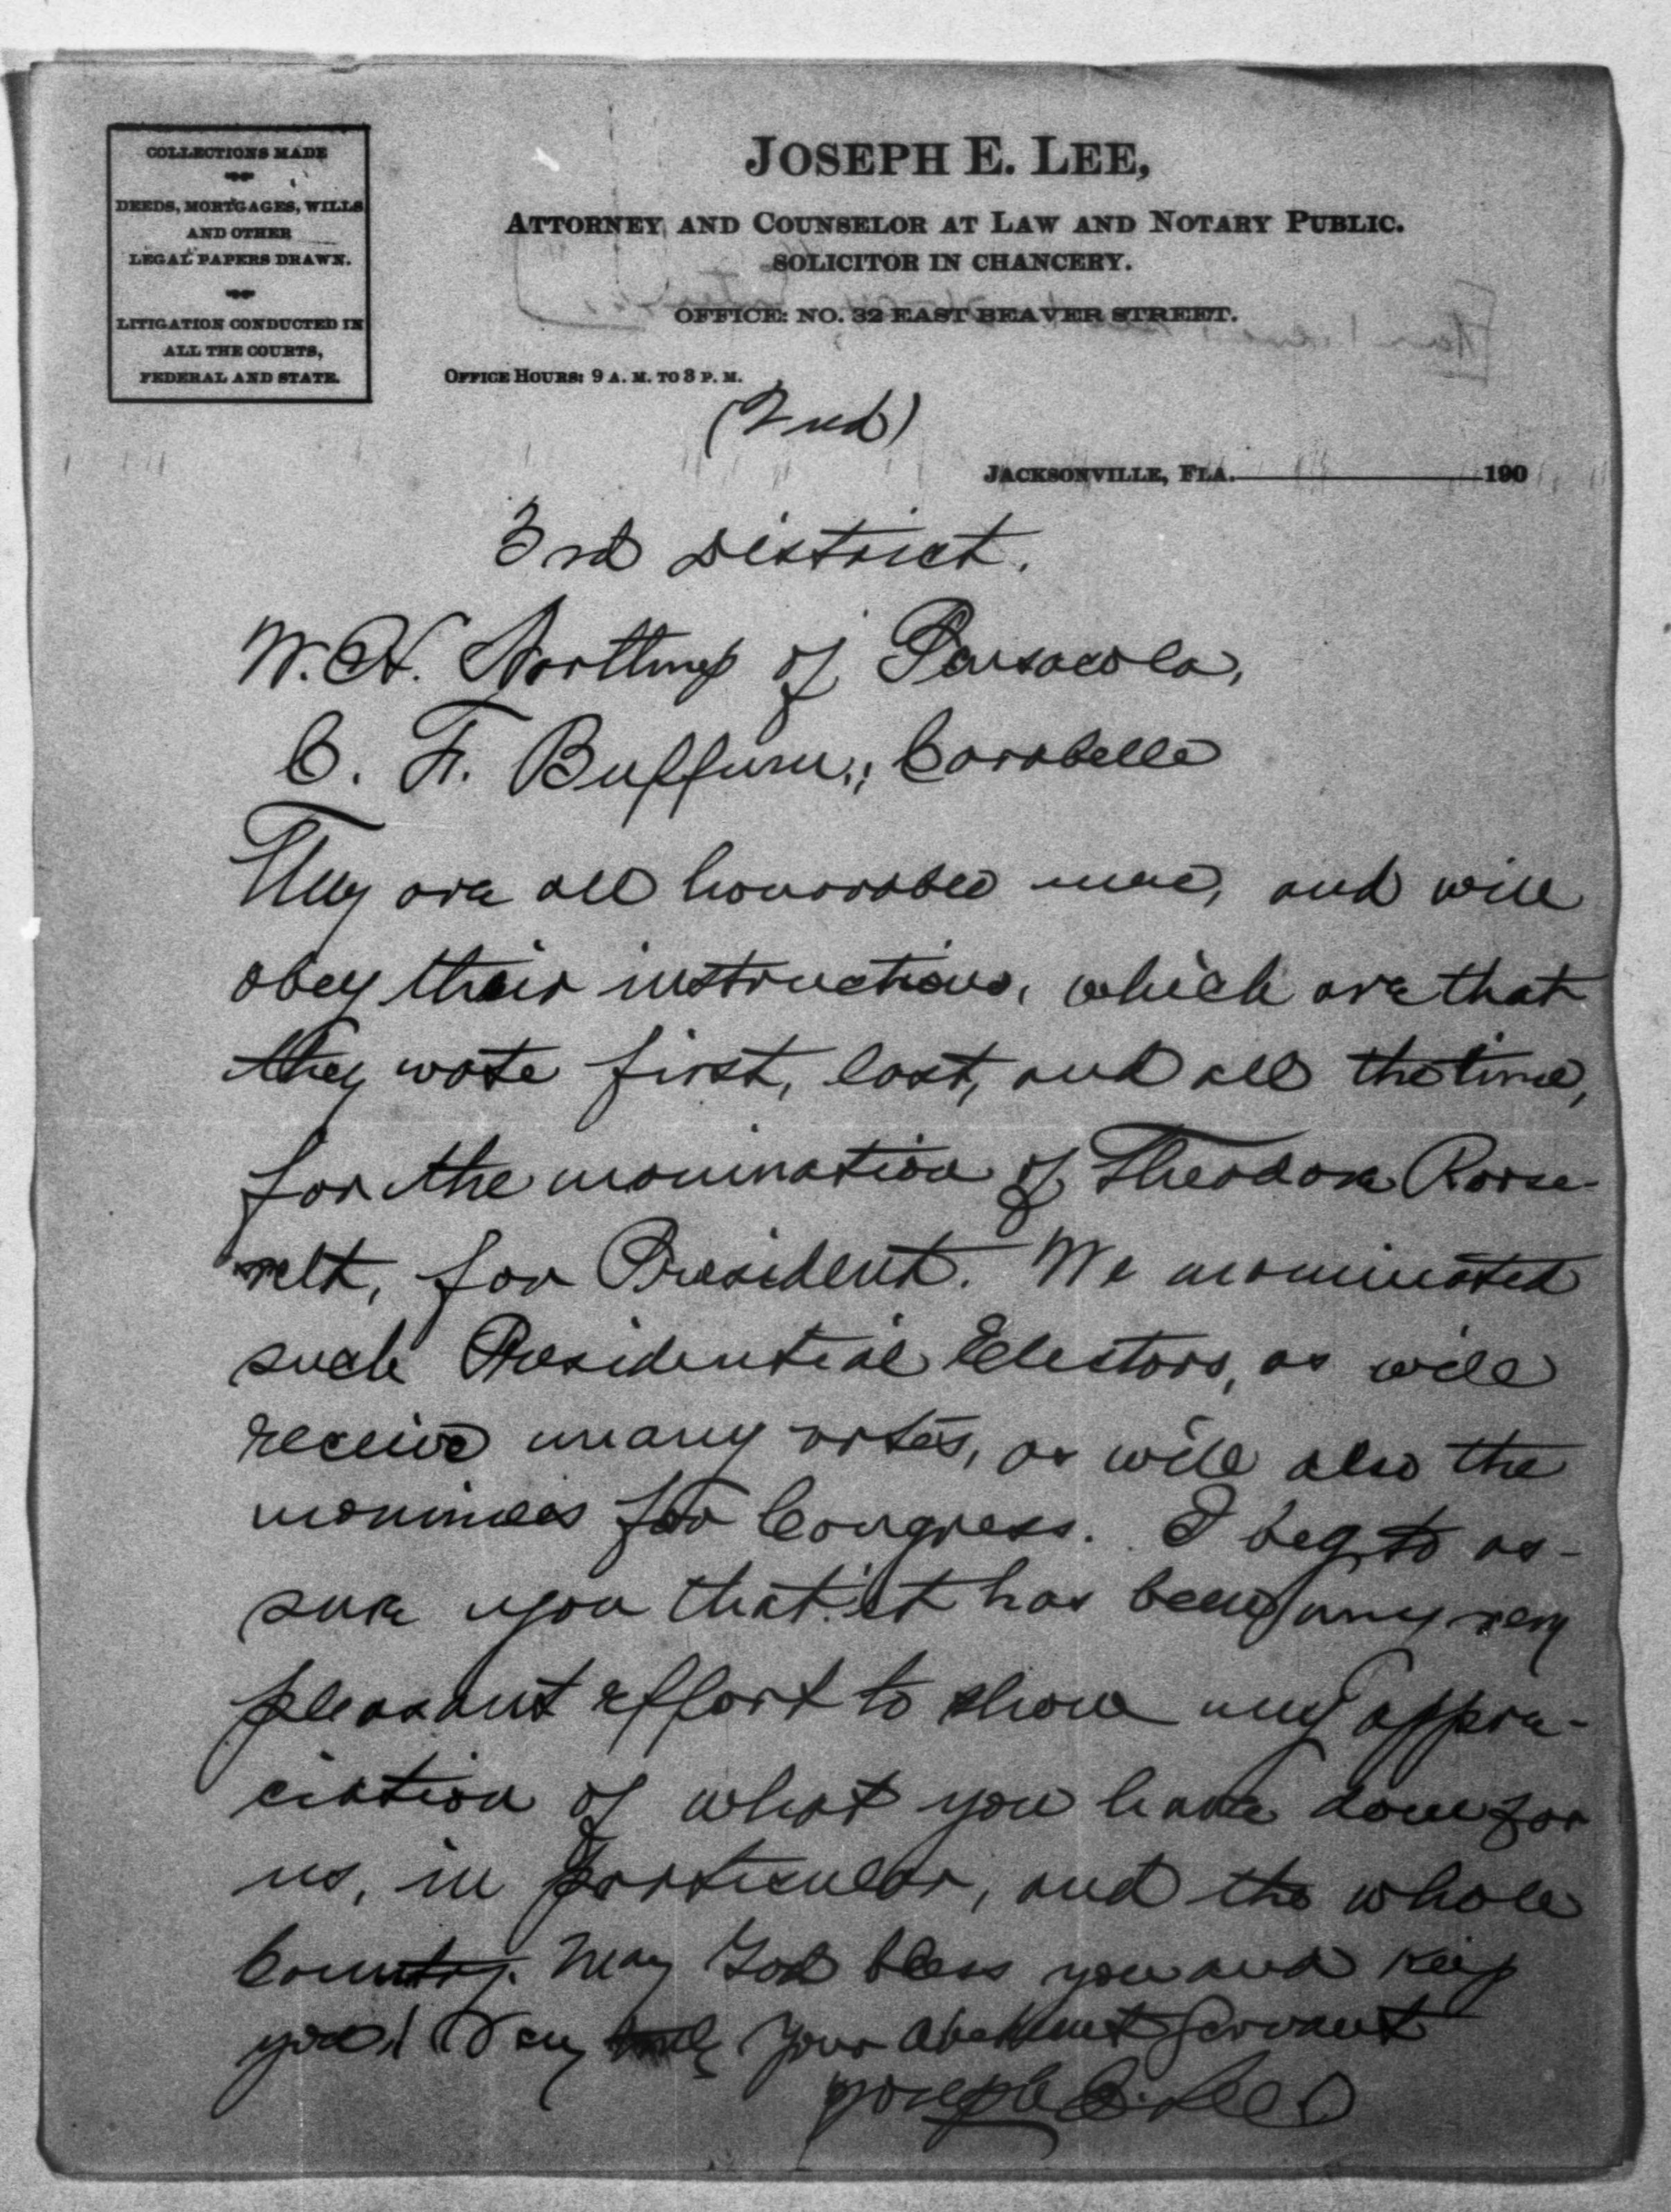 COLLECTIONS MADE
DEEDS, MORTGAGES, WILLS
AND OTHER
LEGAL PAPERS DRAWN.
LITIGATION CONDUCTED IN
ALL THE COURTS,
FEDERAL AND STATE.
JOSEPH E. LEE,
ATTORNEY AND COUNSELOR AT LAW AND NOTARY PUBLIC.
SOLICITOR IN CHANCERY.
OFFICE: NO. 32 EAST BEAVER STREET.
OFFICE HOURS: 9 A. M. TO 8 P. M.
(2nd)
JACKSONVILLE, FLA. 190
3rd District.
W. H. Northup of Pensacola,
C. F. Buffum, Carabelle
They are all honorable men, and will
obey their instructions, which are that
they vote first, last, and all the time,
for the nomination of Theodore Roose-
velt, for President. We nominated
such Presidential Electors, as will
receive many votes, as will also the
nominees for Congress. I beg to as-
sure you that it has been my very
pleasant effort to show my appre-
ciation of what you have done for
us, in particular, and the whole
Country. May God bless you and keep
you! Very Your obedient servant
Joseph E. Lee